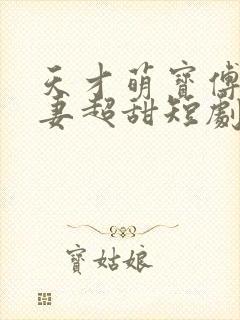 天才萌寶傅
妻超甜短劇
寶姑娘